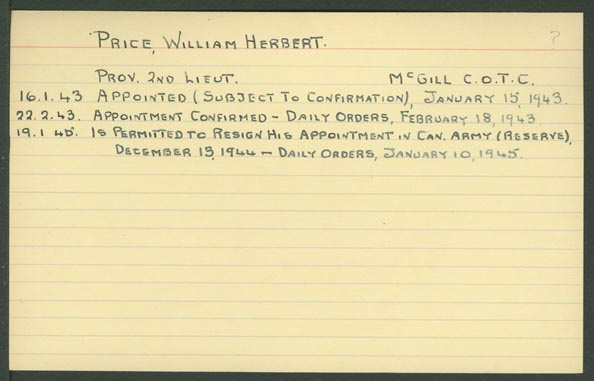 PRICE, WILLIAM HERBERT. ?
PROV. 2ND LIEUT. McGILL C.O.T.C.
16.1.43 APPOINTED (SUBJECT TO CONFIRMATION), JANUARY 15, 1943.
22.2.43. APPOINTMENT CONFIRMED - DAILY ORDERS, FEBRUARY 18, 1943.
19.1 45. IS PERMITTED TO RESIGN HIS APPOINTMENT IN CAN. ARMY (RESERVE),
DECEMBER 13, 1944 - DAILY ORDERS, JANUARY 10, 1945.